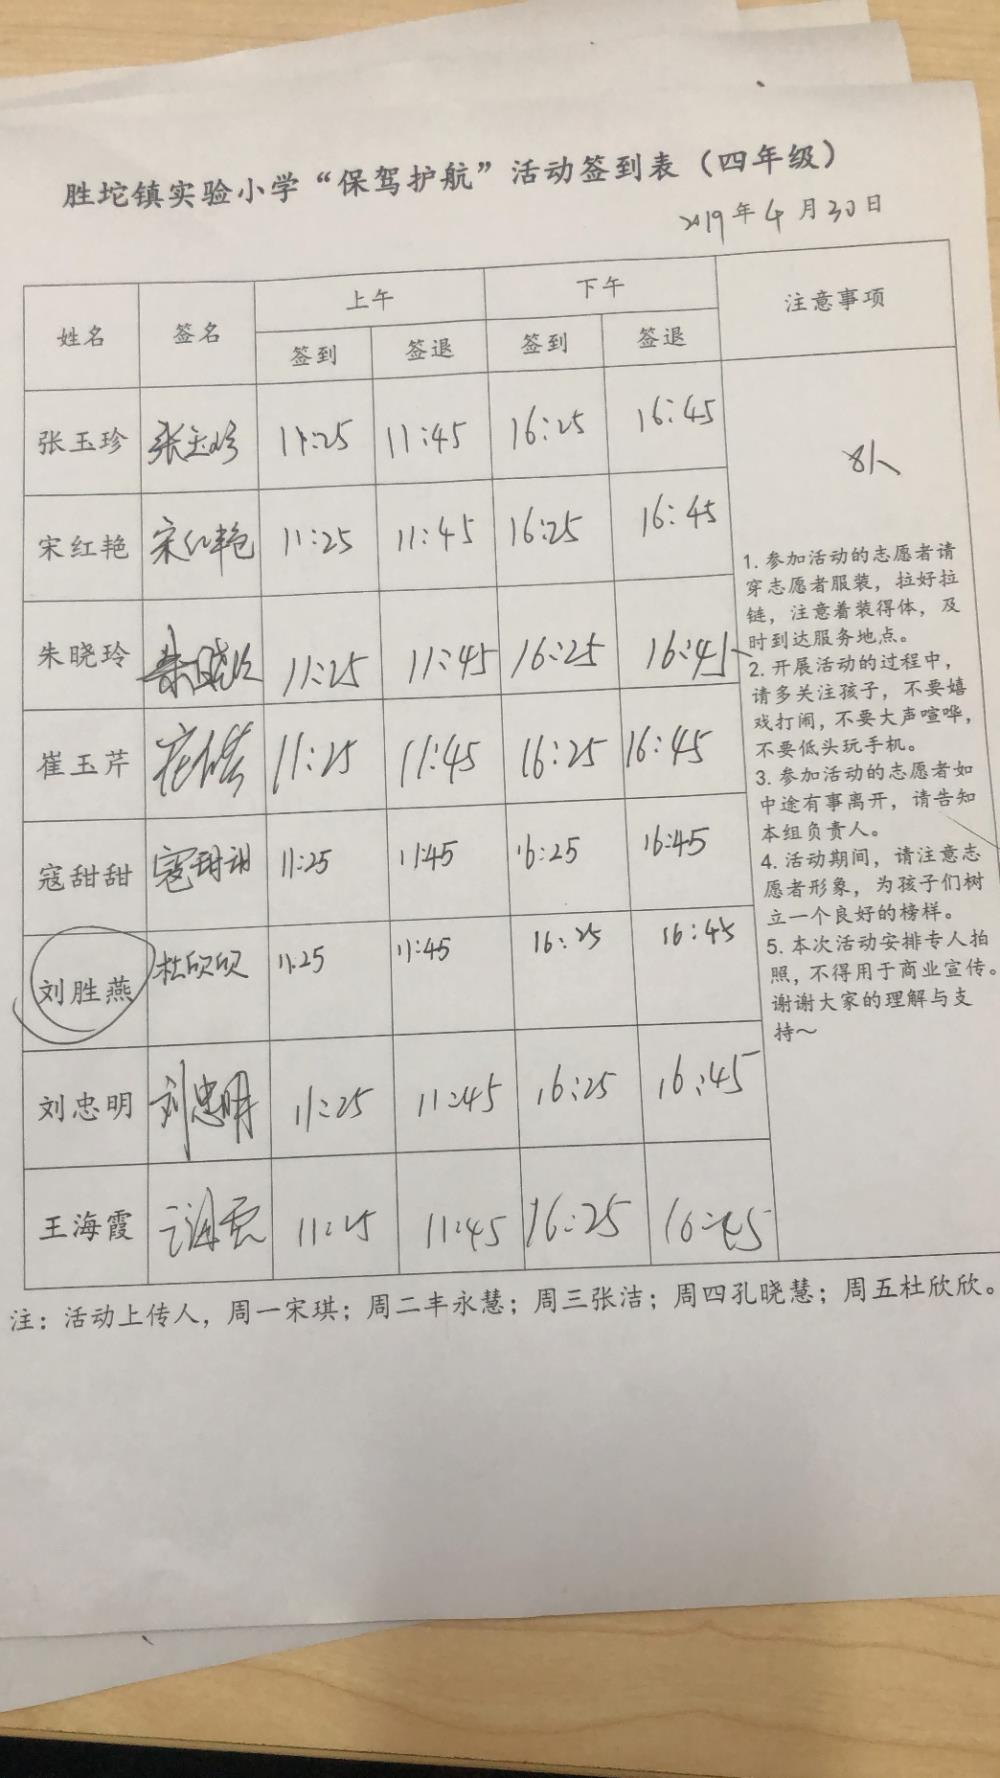 胜坨镇实验小学“保驾护航”活动签到表（四年级）
2019年4月30日
姓名 签名 上午 下午 注意事项
签到 签退 签到 签退
张玉珍 张玉珍 11:25 11:45 16:25 16:45
8人
宋红艳 宋红艳 11:25 11:45 16:25 16:45
朱晓玲 朱晓玲 11:25 11:45 16:25 16:45
崔玉芹 11:25 11:45 16:25 16:45
寇甜甜 寇甜甜 11:25 11:45 16:25 16:45
刘胜燕 杜欣欣 11:25 11:45 16:25 16:45
刘忠明 刘忠明 11:25 11:45 16:25 16:45
王海霞 王海霞 11:25 11:45 16:25 16:45
1. 参加活动的志愿者请
穿志愿者服装，拉好拉
链，注意着装得体，及
时到达服务地点。
2. 开展活动的过程中，
请多关注孩子，不要嬉
戏打闹，不要大声喧哗，
不要低头玩手机。
3. 参加活动的志愿者如
中途有事离开，请告知
本组负责人。
4. 活动期间，请注意志
愿者形象，为孩子们树
立一个良好的榜样。
5. 本次活动安排专人拍
照，不得用于商业宣传。
谢谢大家的理解与支
持～
注：活动上传人，周一宋琪；周二丰永慧；周三张洁；周四孔晓慧；周五杜欣欣。